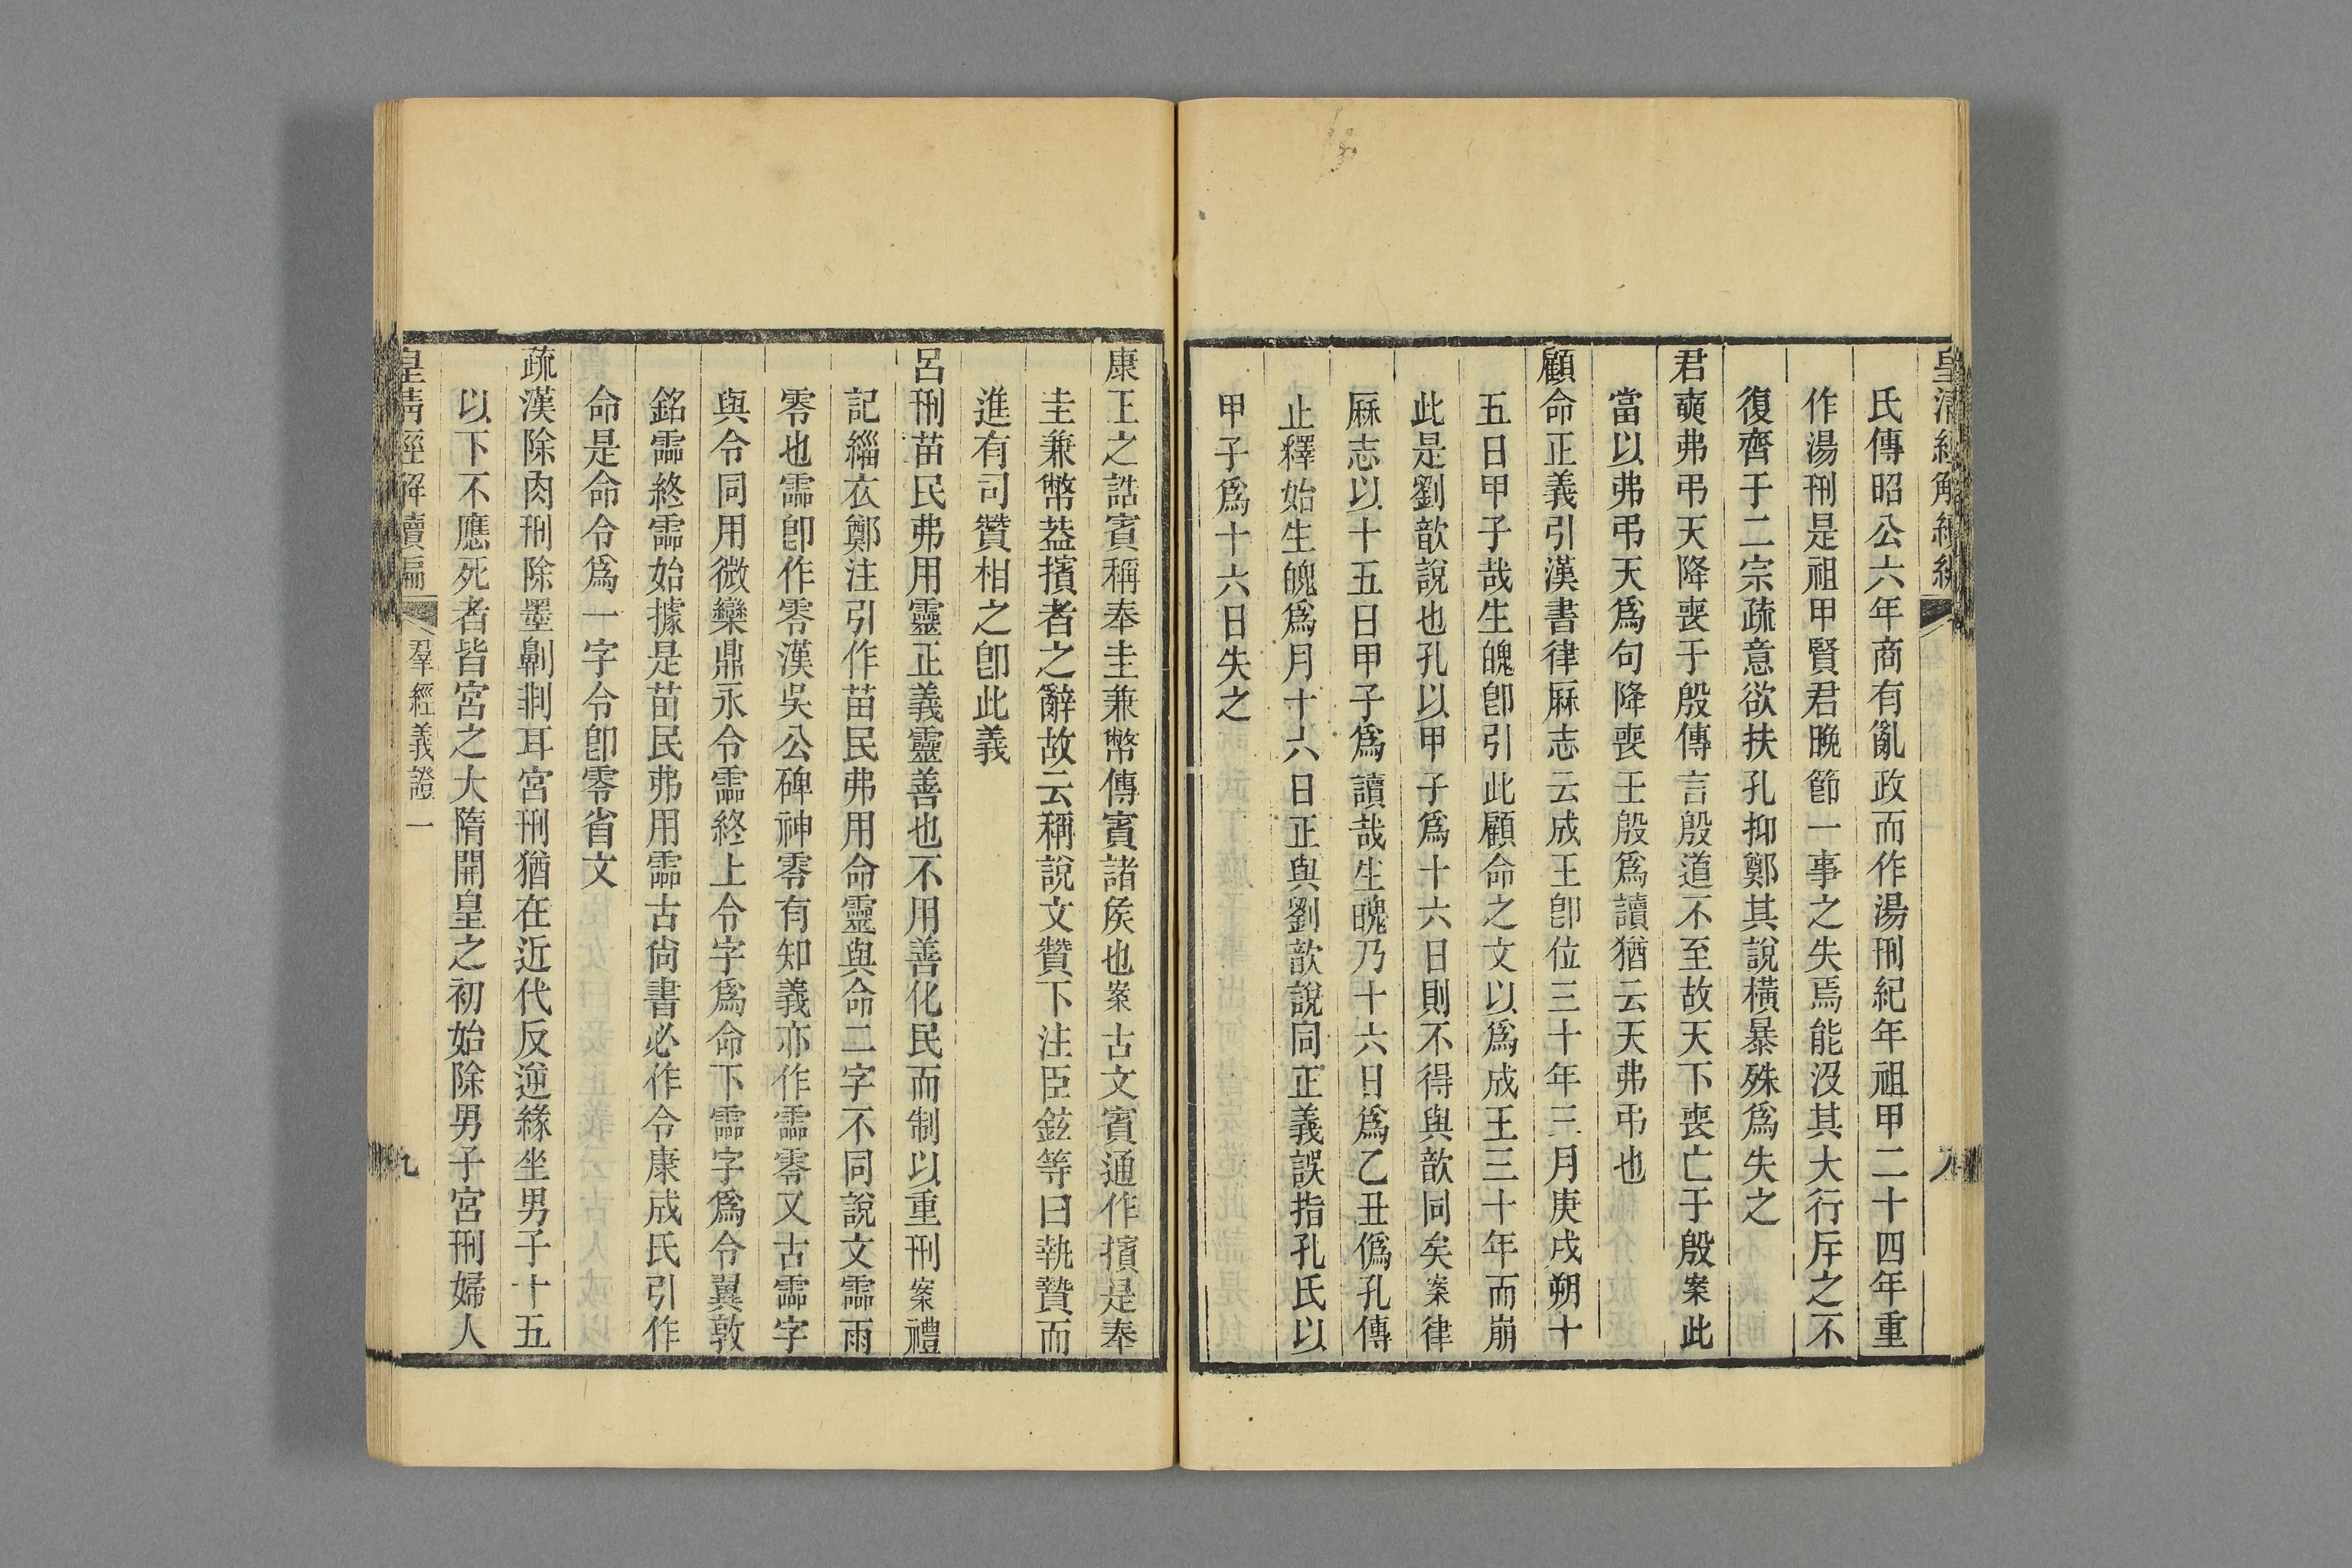 皇清經解續編
八
氏傳昭公六年商有亂政而作湯刑紀年祖甲二十四年重
作湯刑是祖甲賢君晚節一事之失焉能沒其大行斥之不
復齊于二宗疏意欲扶孔抑鄭其說橫暴殊爲失之
君奭弗弔天降喪于殷傳言殷道不至故天下喪亡于殷案此
當以弗弔天爲句降喪于殷爲讀猶云天弗弔也
顧命正義引漢書律厤志云成王卽位三十年三月庚戌朔十
五日甲子哉生魄卽引此顧命之文以爲成王三十年而崩
此是劉歆說也孔以甲子爲十六日則不得與歆同矣案律
厤志以十五日甲子爲讀哉生魄乃十六日爲乙丑僞孔傳
止釋始生魄爲月十六日正與劉歆說同正義誤指孔氏以
甲子爲十六日失之
康王之誥賓稱奉圭兼幣傳賓諸矦也案古文賓通作擯是奉
圭兼幣葢擯者之辭故云稱說文贊下注臣鉉等曰執贄而
進有司贊相之卽此義
呂刑苗民弗用靈正義靈善也不用善化民而制以重刑案禮
記緇衣鄭注引作苗民弗用命靈與命二字不同說文霝雨
零也霝卽作零漢吳公碑神零有知義亦作霝零又古霝字
與令同用微欒鼎永令霝終上令字爲命下霝字爲令翼敦
銘霝終霝始據是苗民弗用霝古尙書必作令康成氏引作
命是命令爲一字令卽零省文
疏漢除肉刑除墨劓剕耳宮刑猶在近代反逆緣坐男子十五
以下不應死者皆宮之大隋開皇之初始除男子宮刑婦人
皇淸經解續編
羣經義證一
九